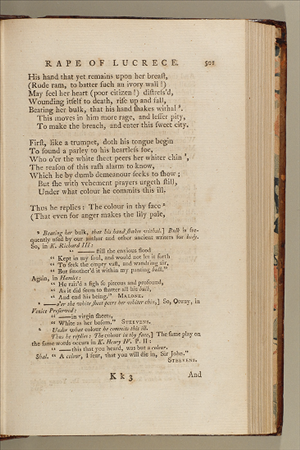 RAPE OF LUCRECE. 501
His hand that yet remains upon her breast,
(Rude ram, to batter such an ivory wall!)
May feel her heart (poor citizen!) distress'd,
Wounding itself to death, rise up and fall,
Beating her bulk, that his hand shakes withal.
This moves in him more rage, and lesser pity,
To make the breach, and enter this sweet city.
First, like a trumpet, doth his tongue begin
To sound a parley to his heartless foe,
Who o'er the white sheet peers her whiter chin,
The reason of this rash alarm to know,
Which he by dumb demeanour seeks to show;
But she with vehement prayers urgeth still,
Under what colour he commits this ill.
Thus he replies: The colour in thy face
(That even for anger makes the lily pale,
Beating her bulk, that his hand shakes withal.] Bulk is fre-
quently used by our author and other ancient writers for body.
So, in K. Richard III:
" —— still the envious flood
" Kept in my soul, and would not let it forth
" To seek the empty, vast, and wand'ring air,
" But smother'd it within my panting bulk."
Again, in Hamlet:
" He rais'd a sigh so piteous and profound,
" As it did seem to shatter all his bulk,
" And end his being." MALONE.
— o'er the white sheet peers her whiter chin,] So, Otway, in
Venice Preserved:
" —— in virgin sheets,
" White as her bosom." STEEVENS.
Under what colour he commits this ill.
Thus he replies: The colour in thy face,] The same play on
the same words occurs in K. Henry IV. P. II:
" —— this that you heard, was but a colour.
Shal. " A colour, I fear, that you will die in, Sir John."
STEEVENS.
Kk3 And